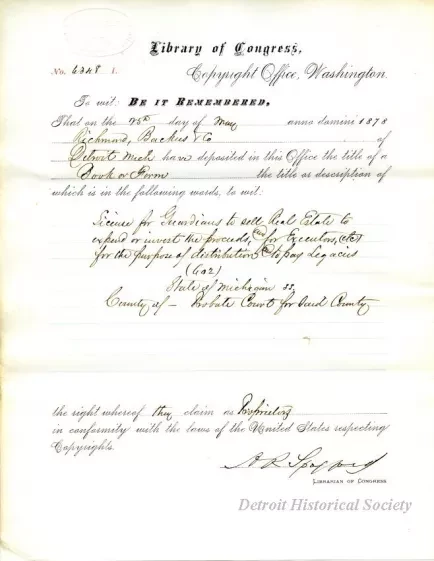 Library of Congress,
No. 6348 I.
Copyright Office, Washington.
To wit: BE IT REMEMBERED,
That on the 25th day of May anno domini 1878
Richmond, Backus & Co of
Detroit Mich have deposited in this Office the title of a
Book or Form the title or description of
which is in the following words, to wit:
License for Guardians to sell Real Estate to
expend or invest the proceeds, for Executors, etc
for the purpose of distribution to pay Legacies
(602)
State of Michigan ss,
County of — Probate Court for said County
the right whereof they claim as Proprietors
in conformity with the laws of the United States respecting
Copyrights.
A R Spofford
LIBRARIAN OF CONGRESS
Detroit Historical Society